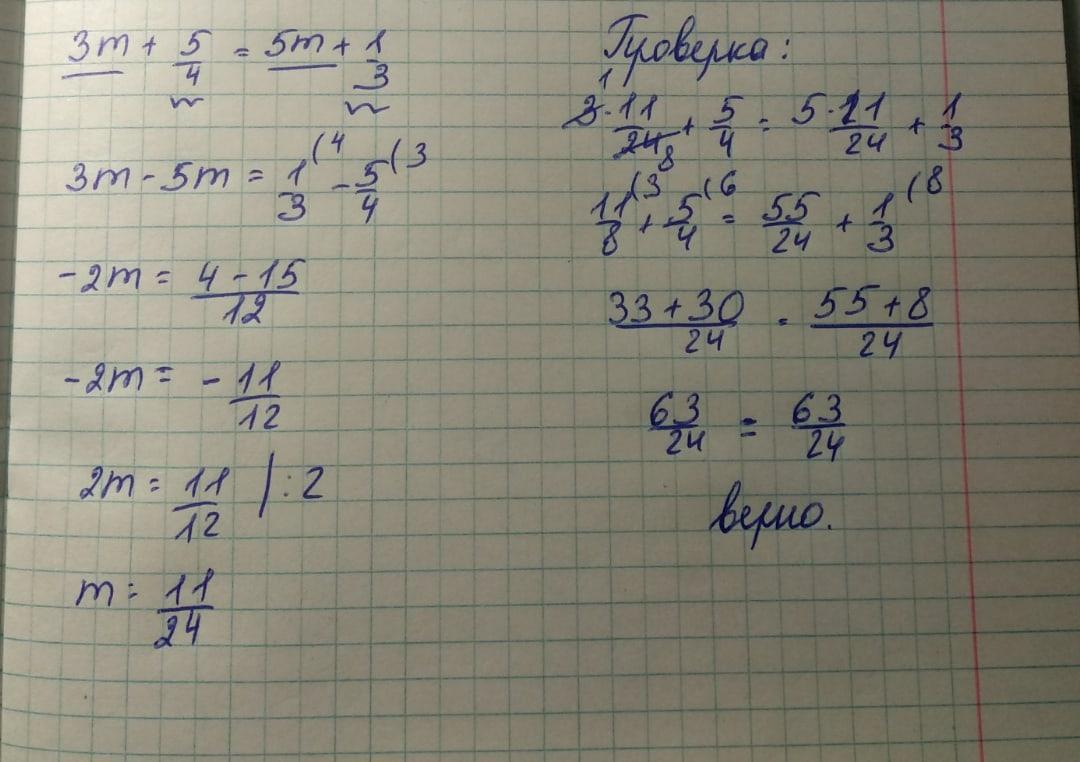 3m + 5/4 = 5m + 1/3
3m - 5m = 1/3 (4 - 5/4 (3
-2m = 4 - 15/12
-2m = - 11/12
2m = 11/12 | : 2
m = 11/24
Проверка:
1
3 · 11/24 8 + 5/4 = 5 · 11/24 + 1/3
11/8 (3 + 5/4 (6 = 55/24 + 1/3 (8
33 + 30/24 = 55 + 8/24
63/24 = 63/24
верно.